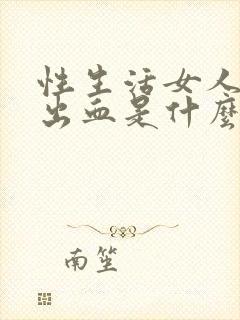 性生活女人
出血是什麼
南笙